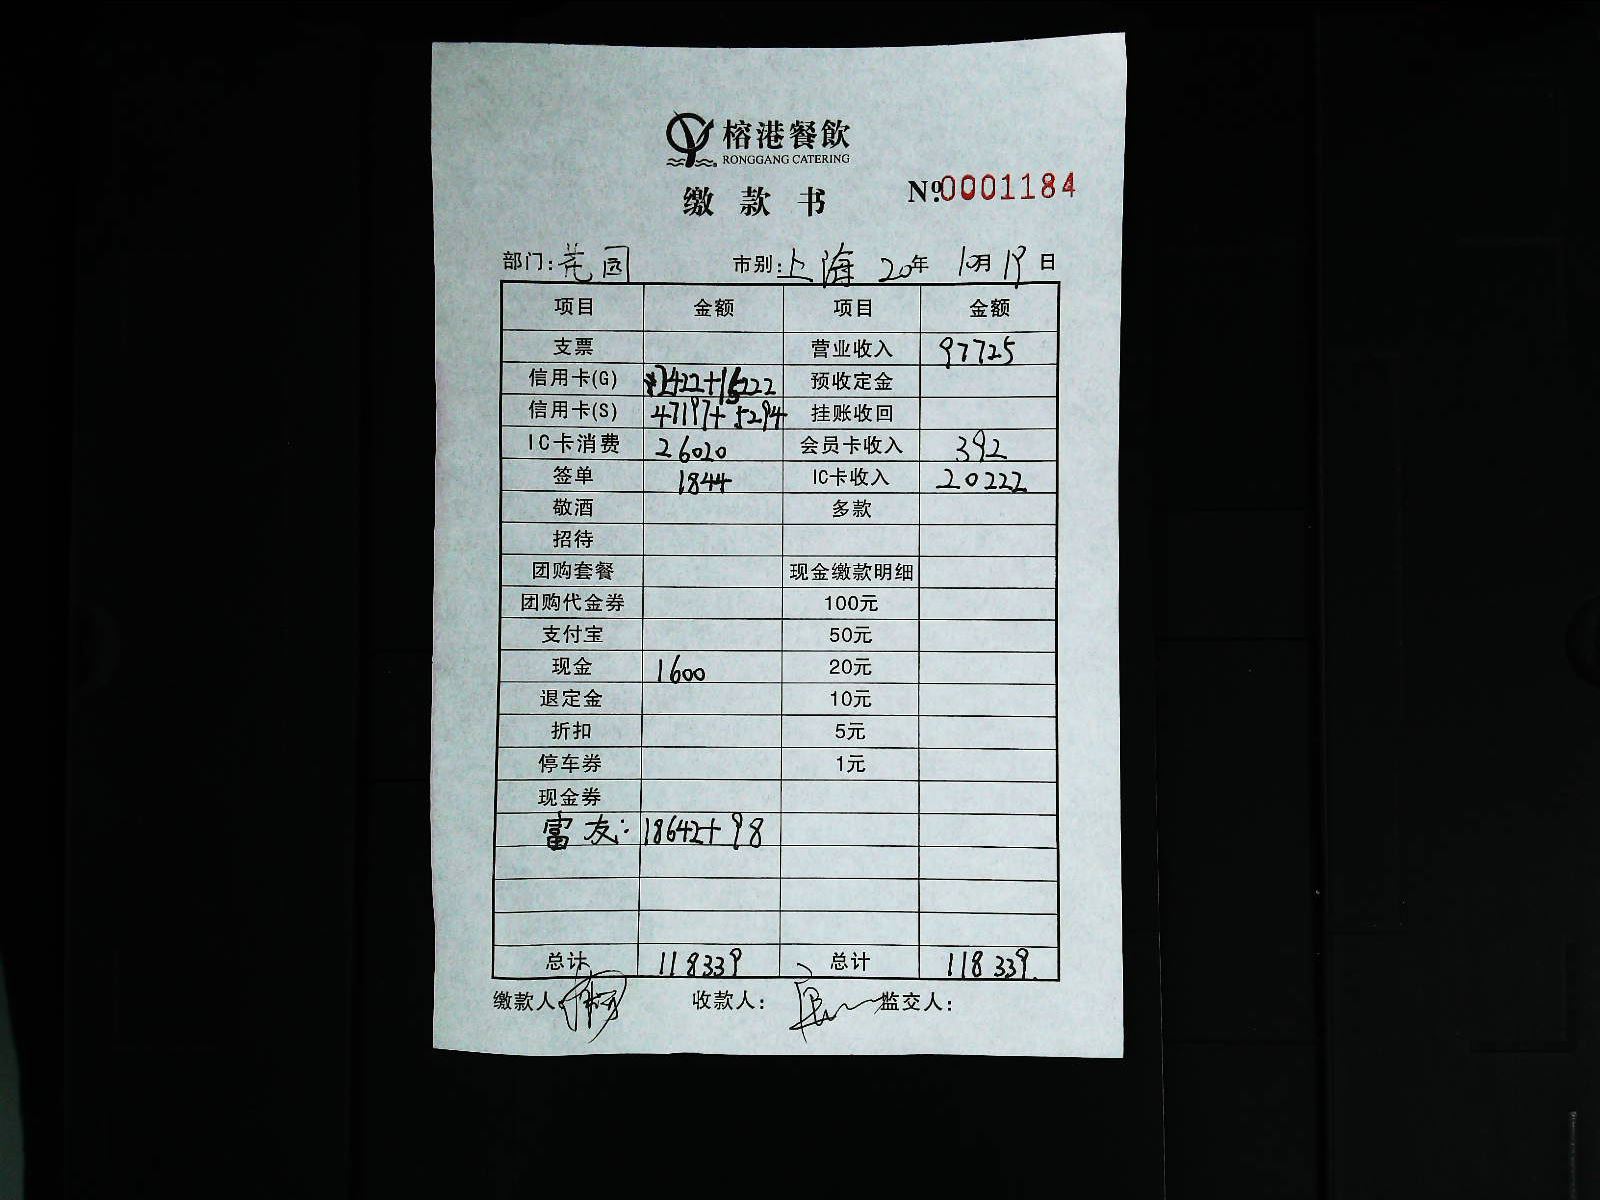 榕港餐飲
RONGGANG CATERING
缴款书 №0001184
部门:花园 市别:上海 20年 10月19日
项目 金额 项目 金额
支票 营业收入 97725
信用卡(G) 2422+15222 预收定金
信用卡(S) 47197+5294 挂账收回
IC卡消费 26020 会员卡收入 392
签单 1844 IC卡收入 20222
敬酒 多款
招待
团购套餐 现金缴款明细
团购代金券 100元
支付宝 50元
现金 1600 20元
退定金 10元
折扣 5元
停车券 1元
现金券
富友: 18642+98
总计 118339 总计 118339.
缴款人: 收款人: 监交人: